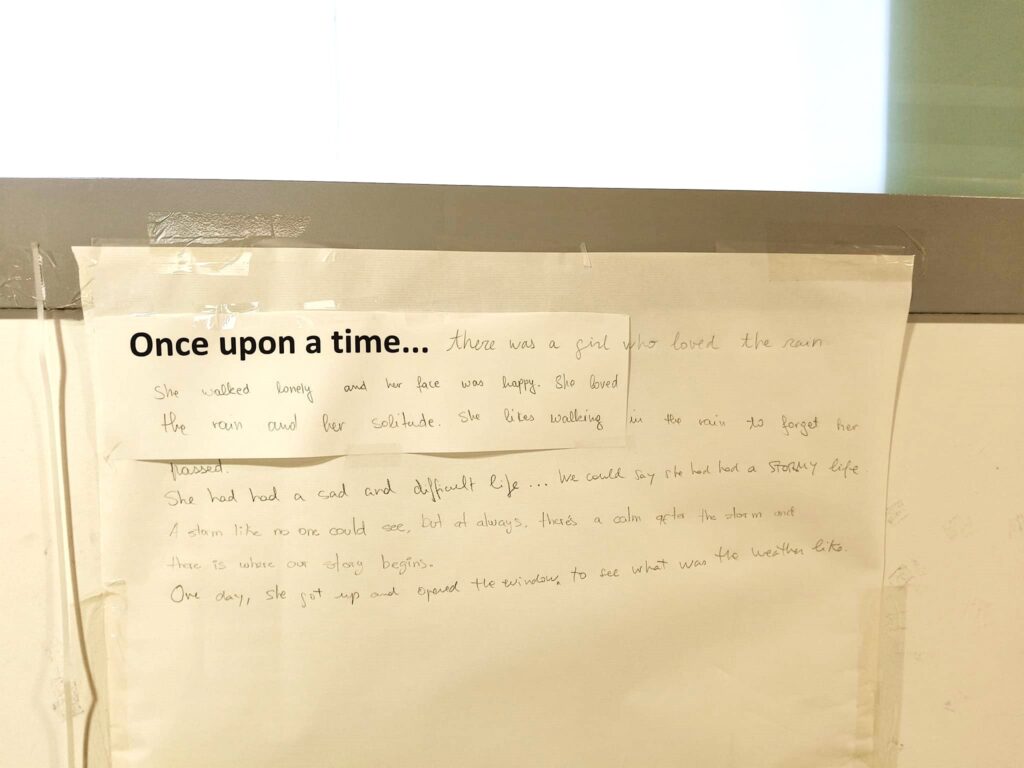 Once upon a time... there was a girl who loved the rain
She walked lonely and her face was happy. She loved
the rain and her solitude. She likes walking in the rain to forget her
passed.
She had had a sad and difficult life... We could say she had had a STORMY life.
A storm like no one could see, but at always, there's a calm after the storm and
there is where our story begins.
One day, she got up and opened the window, to see what was the weather like.